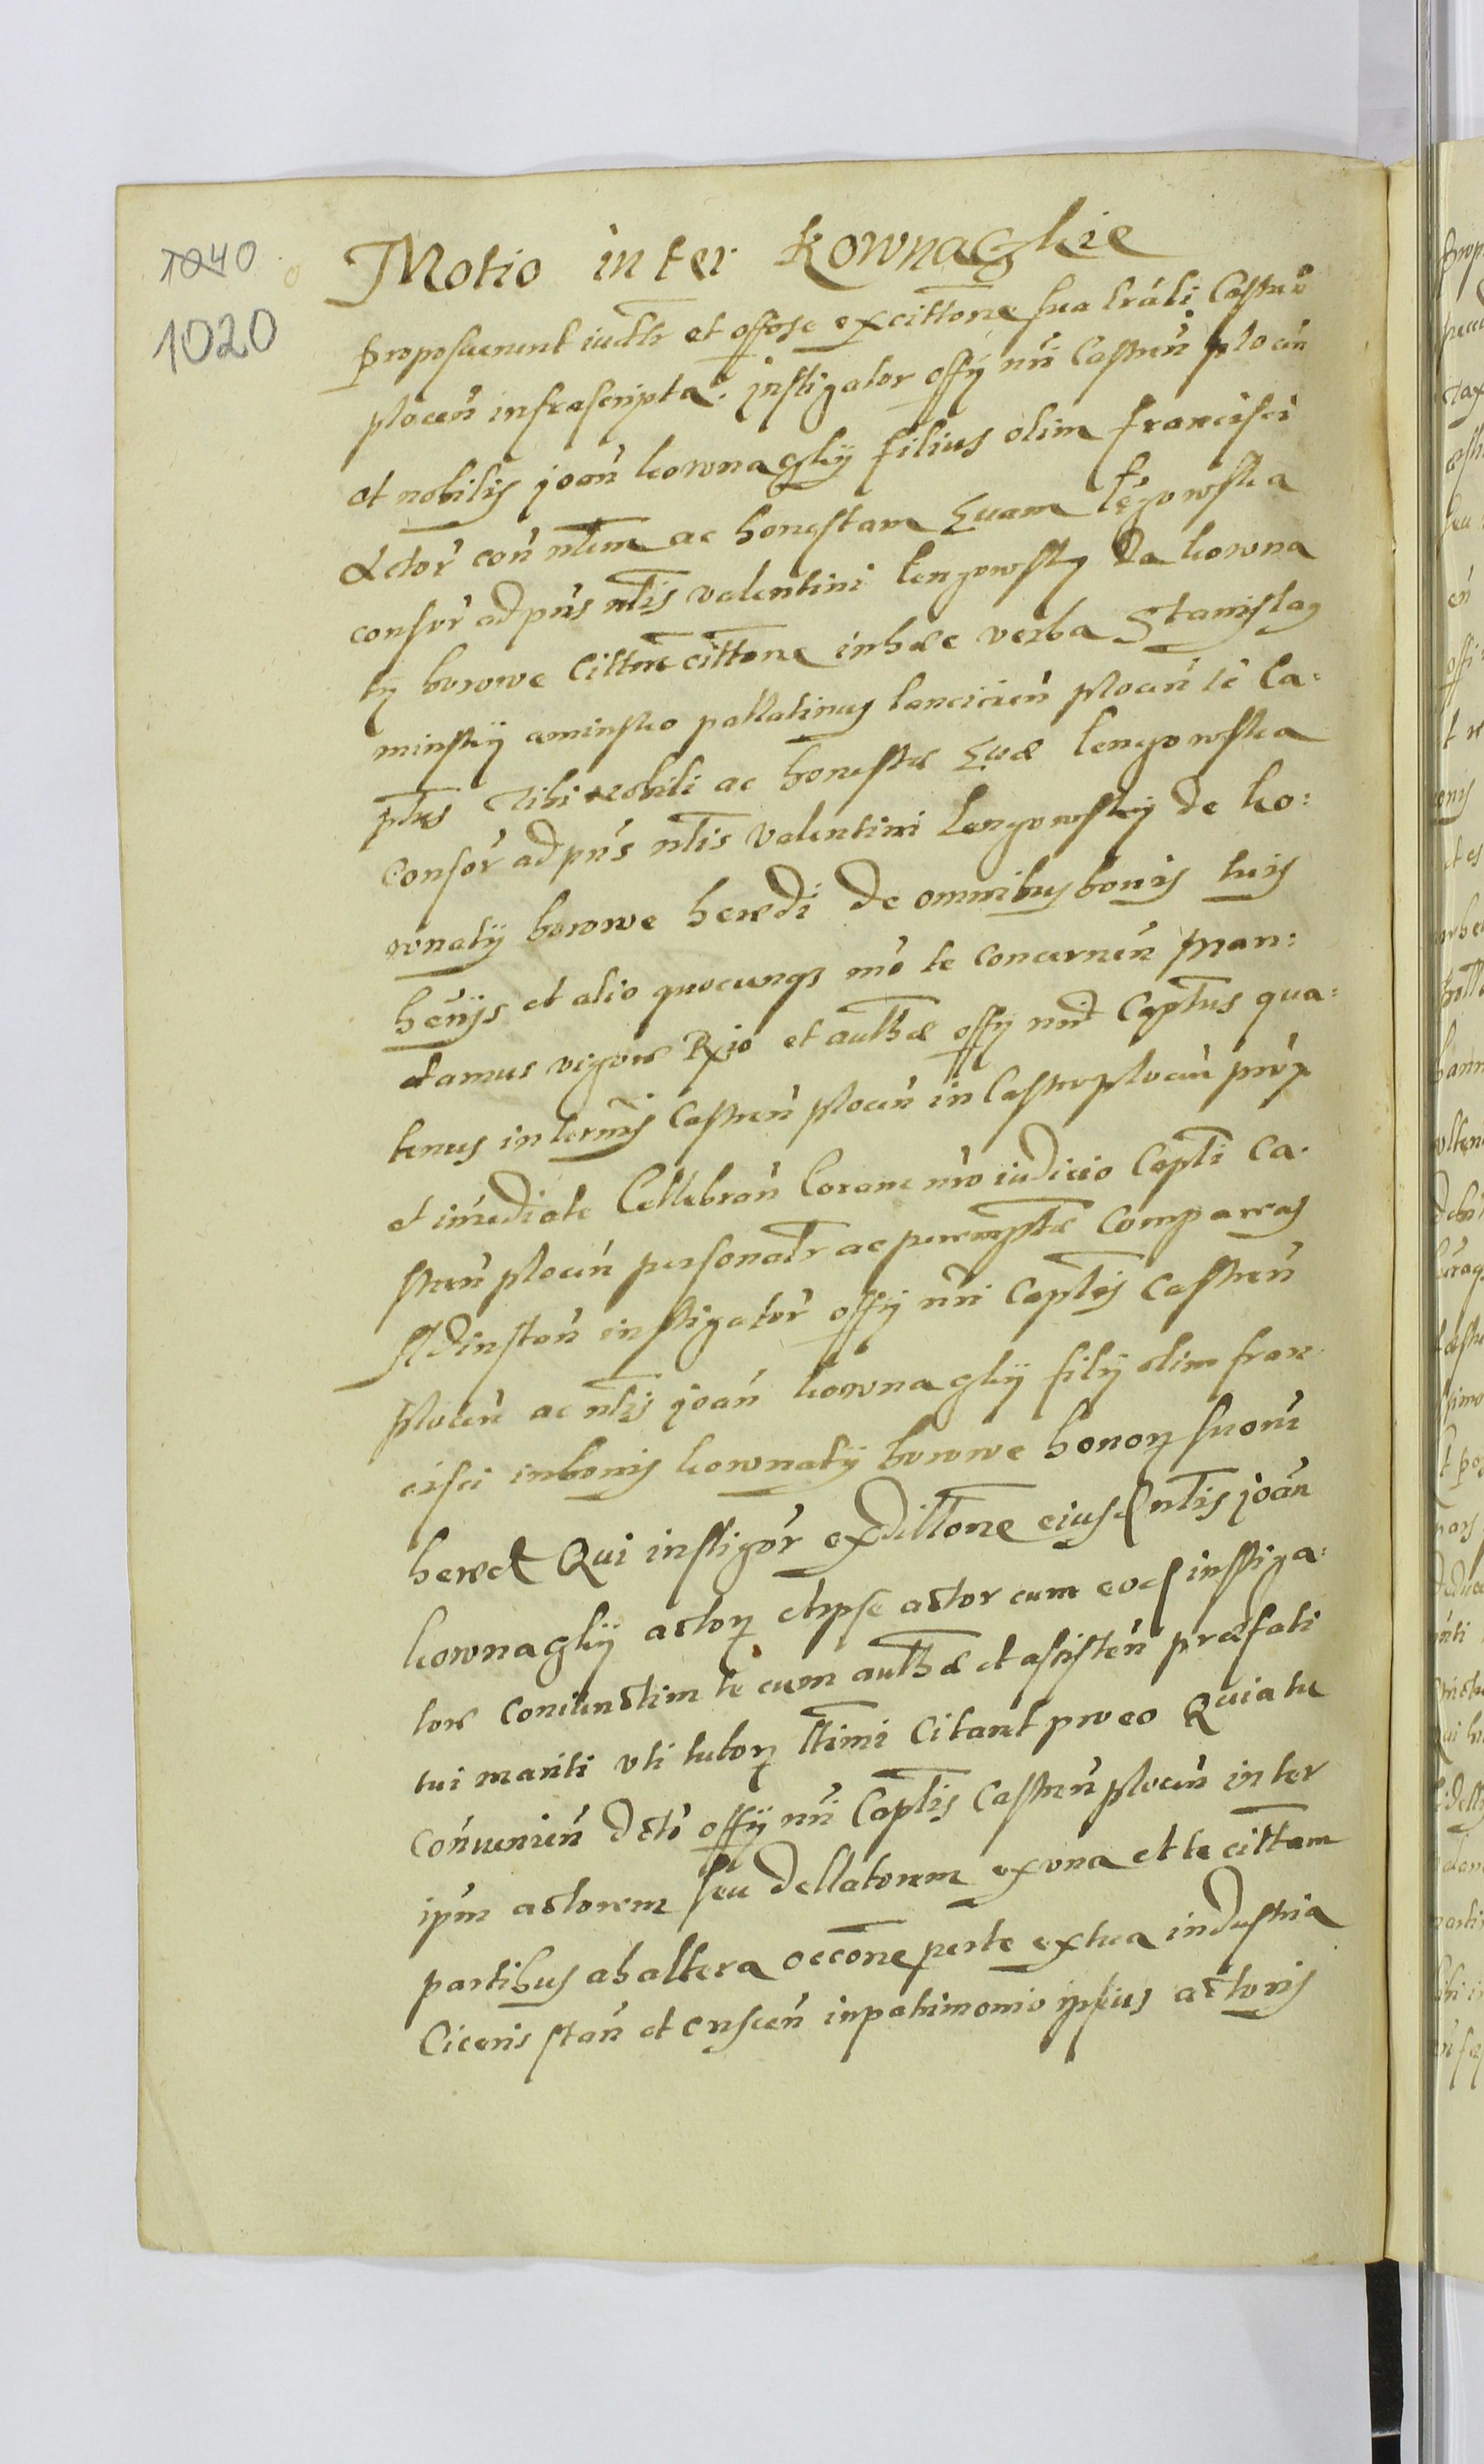 1040
1020
Motio inter Kownaczkie
proposuerunt iudtr et offose excittone sua lrali Castren
plocen infrascripta. instigator offy nri Castren plocen
et nobilis joan kownaczky filius olim francisci
Actor con nlem ac honestam Euam Legowska
consor ad pns nlis valentini Lengowsky da kowna
ty borowe Cittm cittone inhæc verba Stanislaus
minsky aminsko pallatinus lancicien plocen te Ca:
ptus Tibi nobili ac honestæ Euæ Lengowska
Consor ad pns nlis valentini Lengowsky de ko:
wnaty borowe heredi de omnibus bonis tuis
henijs et alio quocunqz mo te concernen man:
damus vigore Rgio et autha offy nri Captus qua:
tenus in termis Castren plocen in Castro plocen prox
et imediate Cellebran Coram nro iudicio Capli Ca.
stren plocen personalr ac peremptr Compareas
Ad instan instigator offy nri Captis Castren
plocen ac nlis joan kownaczky fily olim fran
cisci in bonis kownaty borowe bonorz suorum
hered Qui instigor ex dittone eiusd nlis joan
kownaczky actorz et ipse actor cum eod instiga:
tore coniunctim te cum autha et assisten præfati
tui mariti vti tutorz ltimi Citant pro eo Quia tu
conuenien dcto offy nri Captis Castren plocen inter
ipm actorem seu dellatorem ex vna et te cittam
partibus ab altera occone perte ex tua industria
Ciceris stan et crescen in patrimonio ipsius actoris